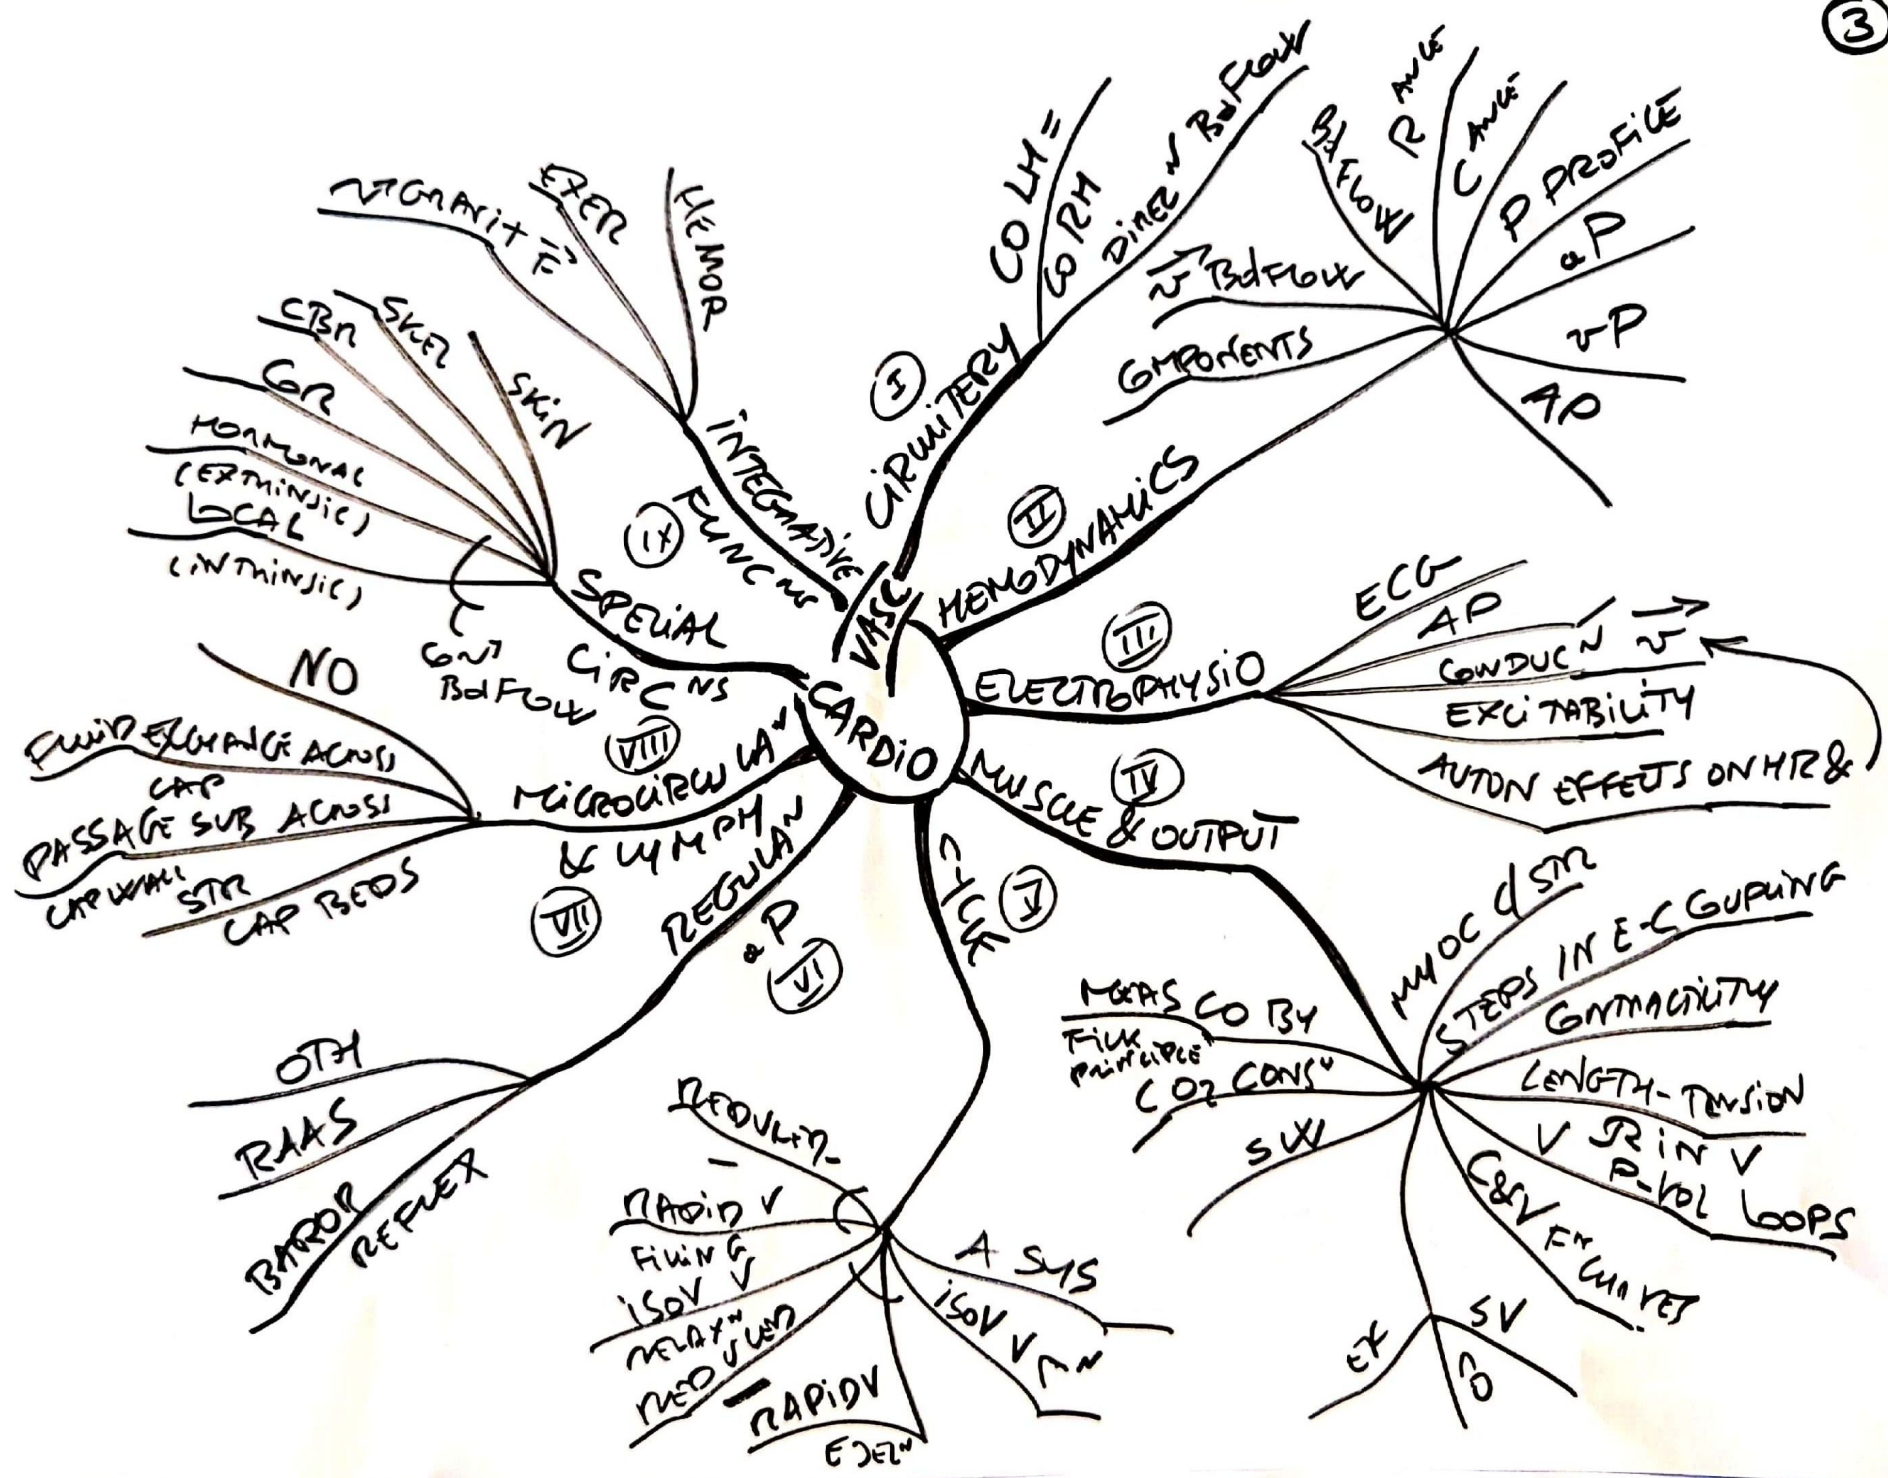 3
CARDIO
VASC
I
CIRCUITERY
CO LH =
CO RH
DIREC^N Bd FLOW
II
HEMODYNAMICS
COMPONENTS
v Bd FLOW
Bd FLOW
R ANCE
C ANCE
P PROFILE
aP
vP
AP
III
ELECTROPHYSIO
ECG
AP
CONDUC^N v
EXCITABILITY
AUTON EFFECTS ON HR &
IV
MUSCLE & OUTPUT
MYOC STR
STEPS IN E-C COUPLING
CONTRACTILITY
LENGTH-TENSION
V R IN V
P-VOL LOOPS
C&V F^N CURVES
SV
EF
SW
C O2 CONS^N
MEAS CO BY
FICK
PRINCIPLE
V
CYCLE
A SYS
ISOV V C^N
RAPID V
EJEC^N
RED V EJ
ISOV V
RELAX^N
RAPID V
FILLING
RED V FILL
VI
REGULA^N
aP
BAROR
REFLEX
RAAS
OTH
VII
MICROCIRCULA^N
& LYMPH
CAP BEDS
STR
PASSAGE SUB ACROSS
CAP WALL
FLUID EXCHANGE ACROSS
CAP
NO
VIII
SPECIAL
CIRC^NS
CONT
Bd FLOW
LOCAL
(INTRINSIC)
HORMONAL
(EXTRINSIC)
COR
CBR
SKEL
SKIN
IX
INTEGRATIVE
FUNC^NS
GRAVIT F
EXER
HEMOR